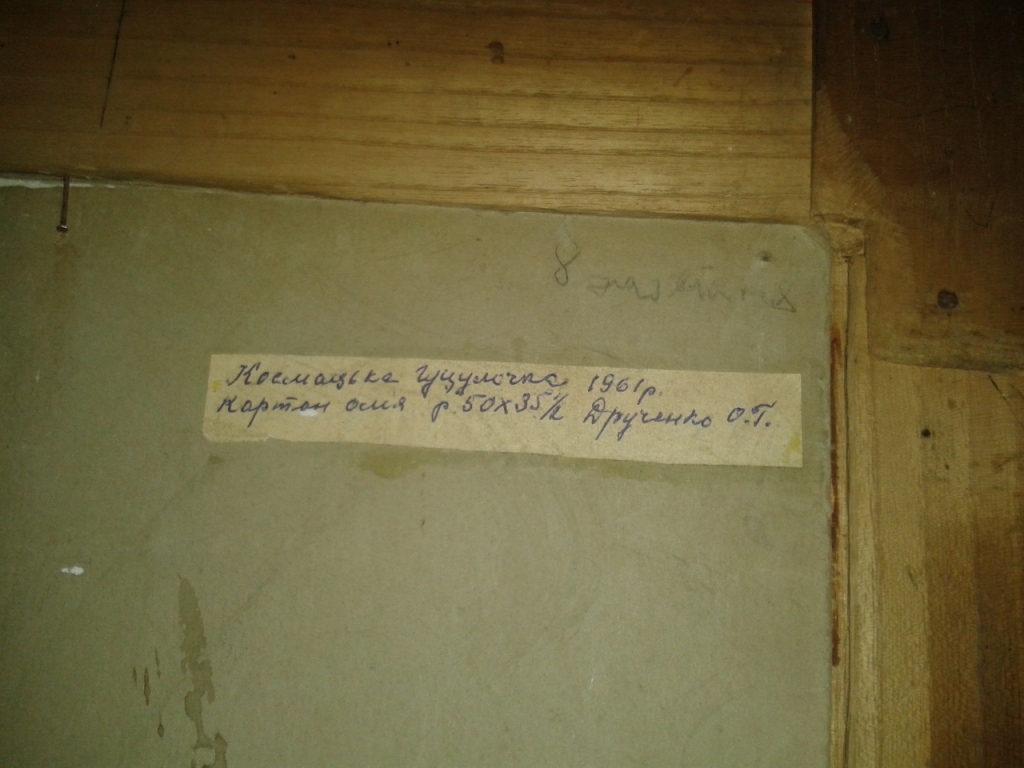 8
Космацька Гуцулочка 1961р.
Картон олія р. 50х35 Друченко О.Г.